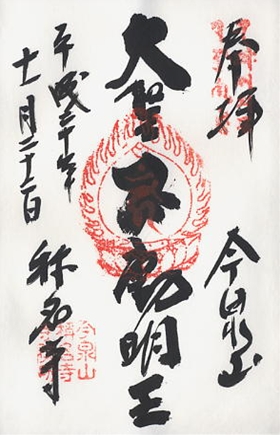 奉拝
今泉山
大聖不動明王
平成三十年
十一月二十二日
称名寺
今泉山
稱名寺